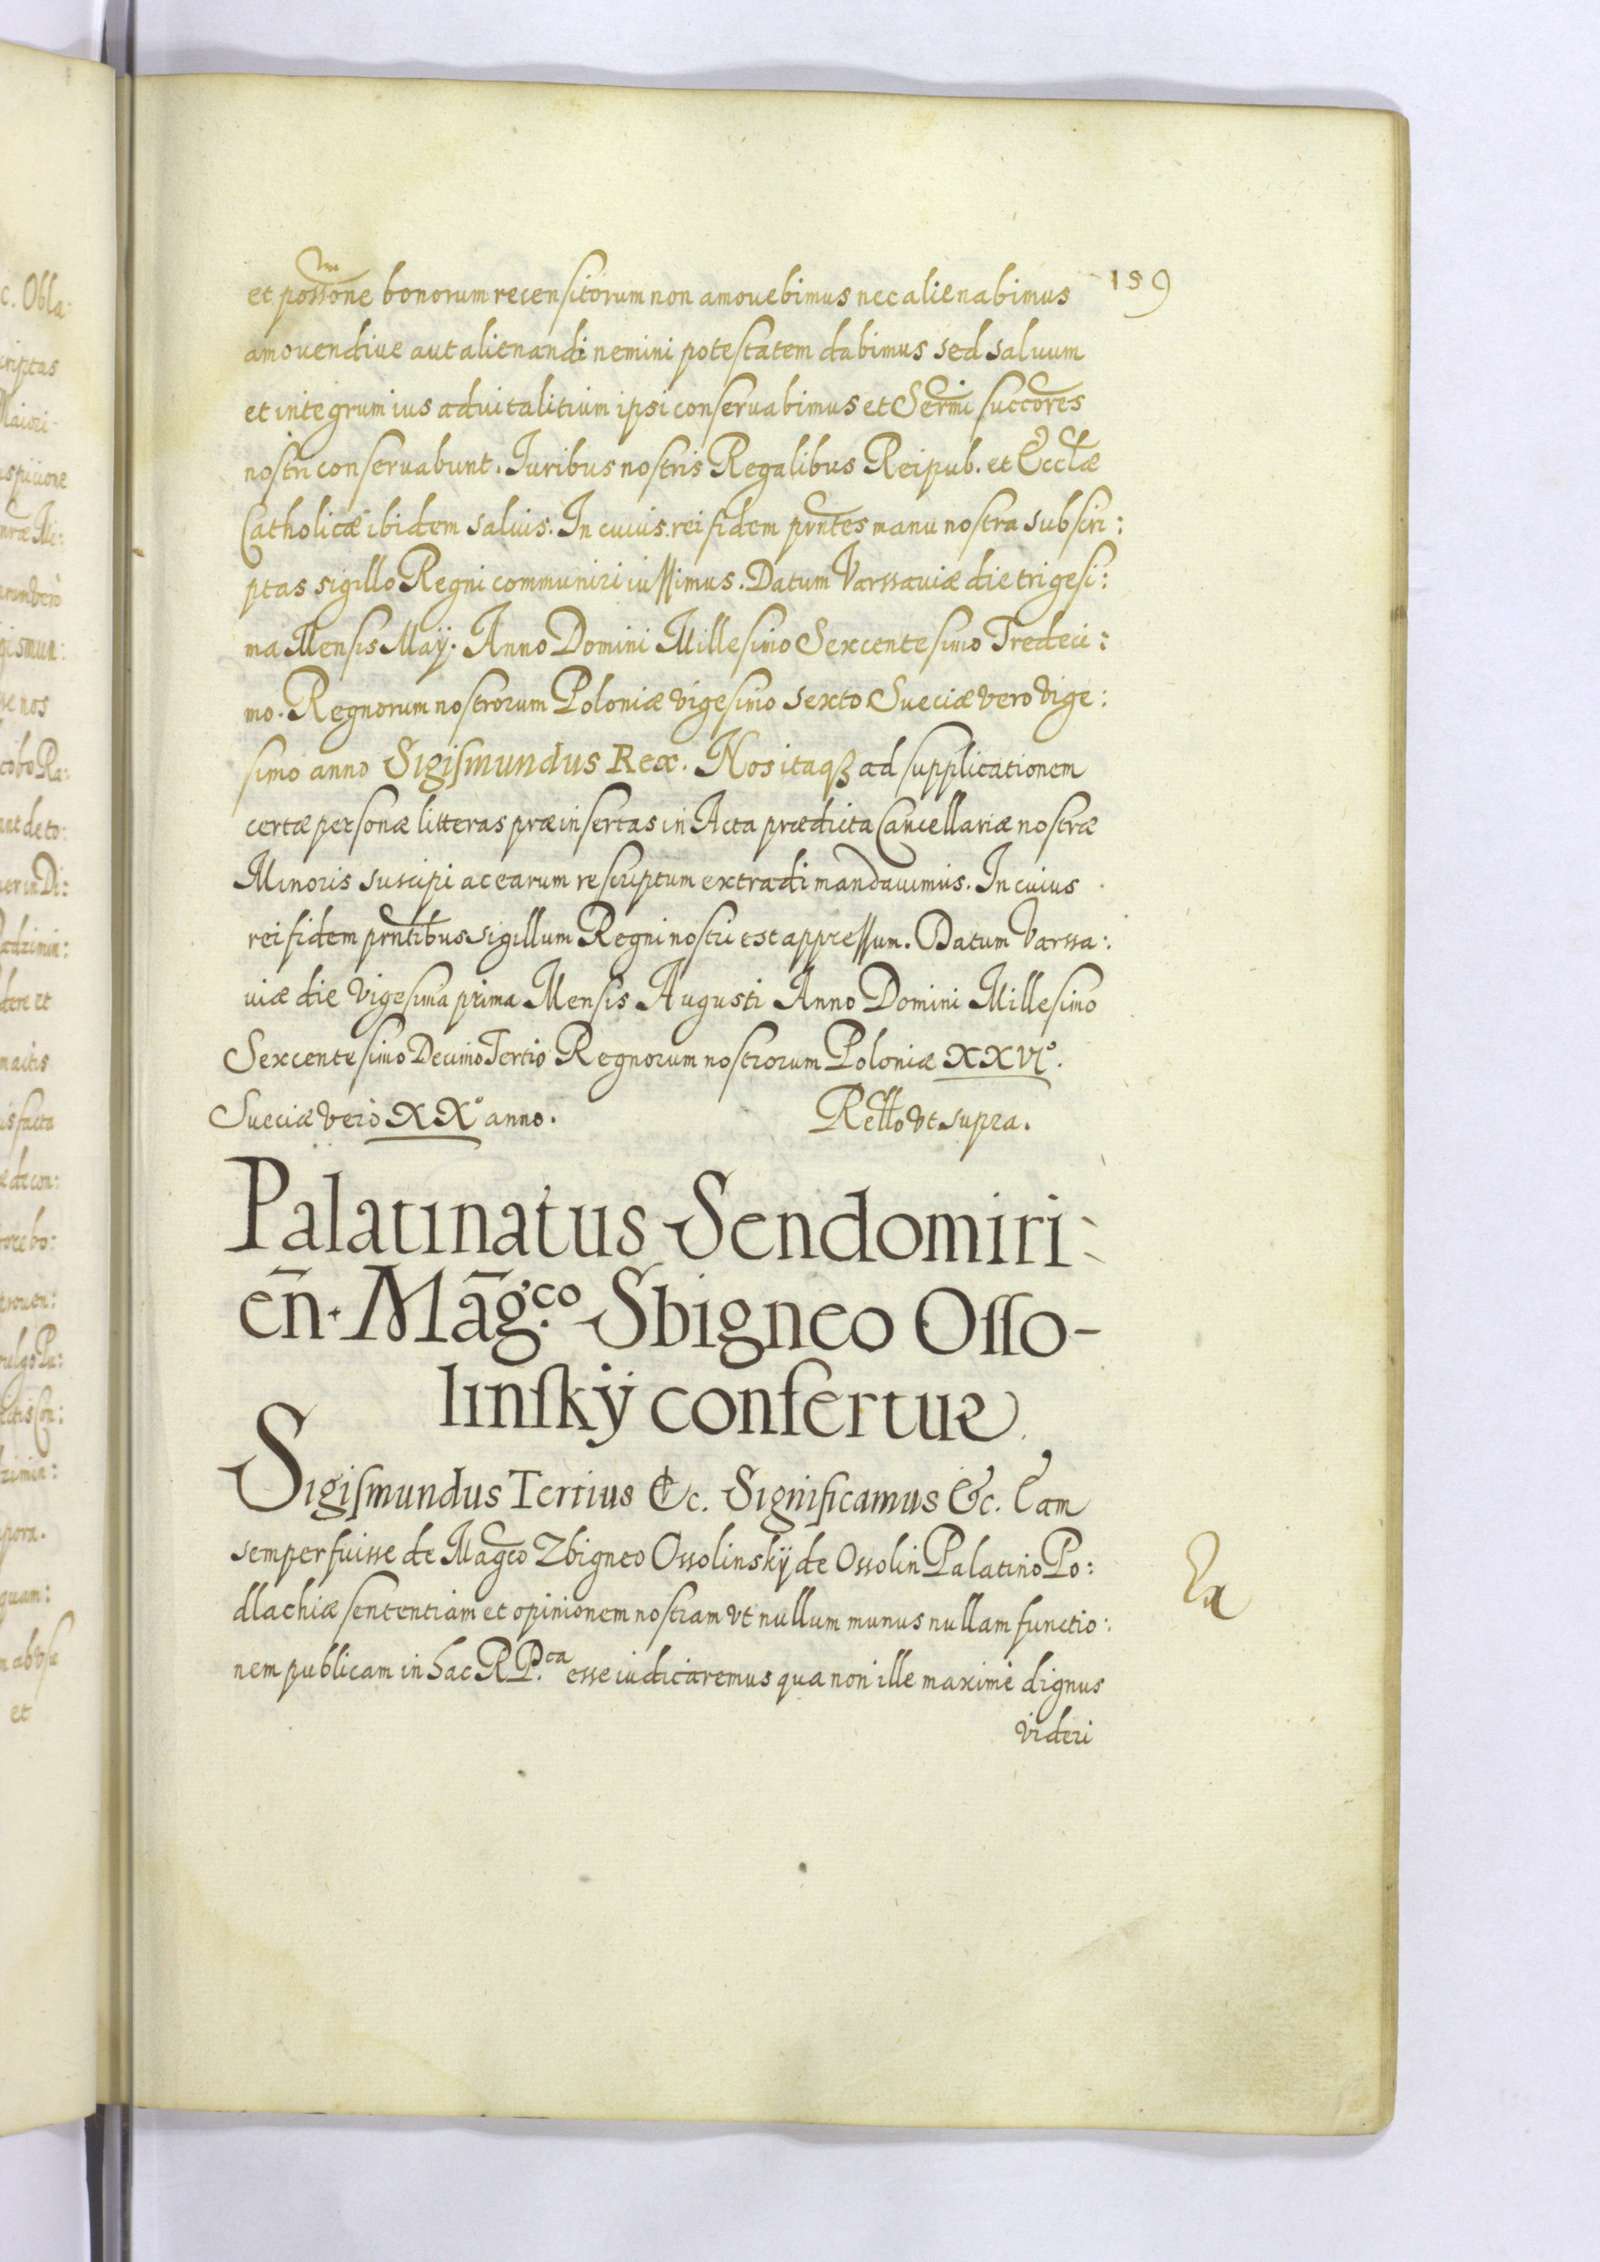 159
et possone bonorum recensitorum non amouebimus nec alienabimus
amouendiue aut alienandi nemini potestatem dabimus sed saluum
et integrum ius aduitalitium ipsi conseruabimus et Sermi succores
nostri conseruabunt. Iuribus nostris Regalibus Reipub. et Ecclæ
Catholicæ ibidem saluis. In cuius rei fidem prntes manu nostra subscri:
ptas sigillo Regni communiri iussimus. Datum Varssauiæ die trigesi:
ma Mensis Maÿ. Anno Domini Millesimo Sexcentesimo Tredeci:
mo. Regnorum nostrorum Poloniæ vigesimo sexto Sueciæ vero vige:
simo anno Sigismundus Rex. Nos itaqȝ ad supplicationem
certæ personæ litteras præinsertas in Acta prædicta Cancellariæ nostræ
Minoris suscipi ac earum rescriptum extradi mandauimus. In cuius
rei fidem prntibus sigillum Regni nostri est appressum. Datum Varssa:
uiæ die vigesima prima Mensis Augusti Anno Domini Millesimo
Sexcentesimo Decimo Tertio Regnorum nostrorum Poloniæ XXVIº.
Sueciæ verò XXº anno. Rello vt supra.
Palatinatus Sendomiri-
en̄. Māg.co Sbigneo Osso-
linskÿ confertur
Sigismundus Tertius &c. Significamus &c. Eam
semper fuisse de Magco Zbigneo Ossolinskÿ de Ossolin Palatino Po:
dlachiæ sententiam et opinionem nostram vt nullum munus nullam functio:
nem publicam in hac RP.ca esse iudicaremus qua non ille maximè dignus
videri